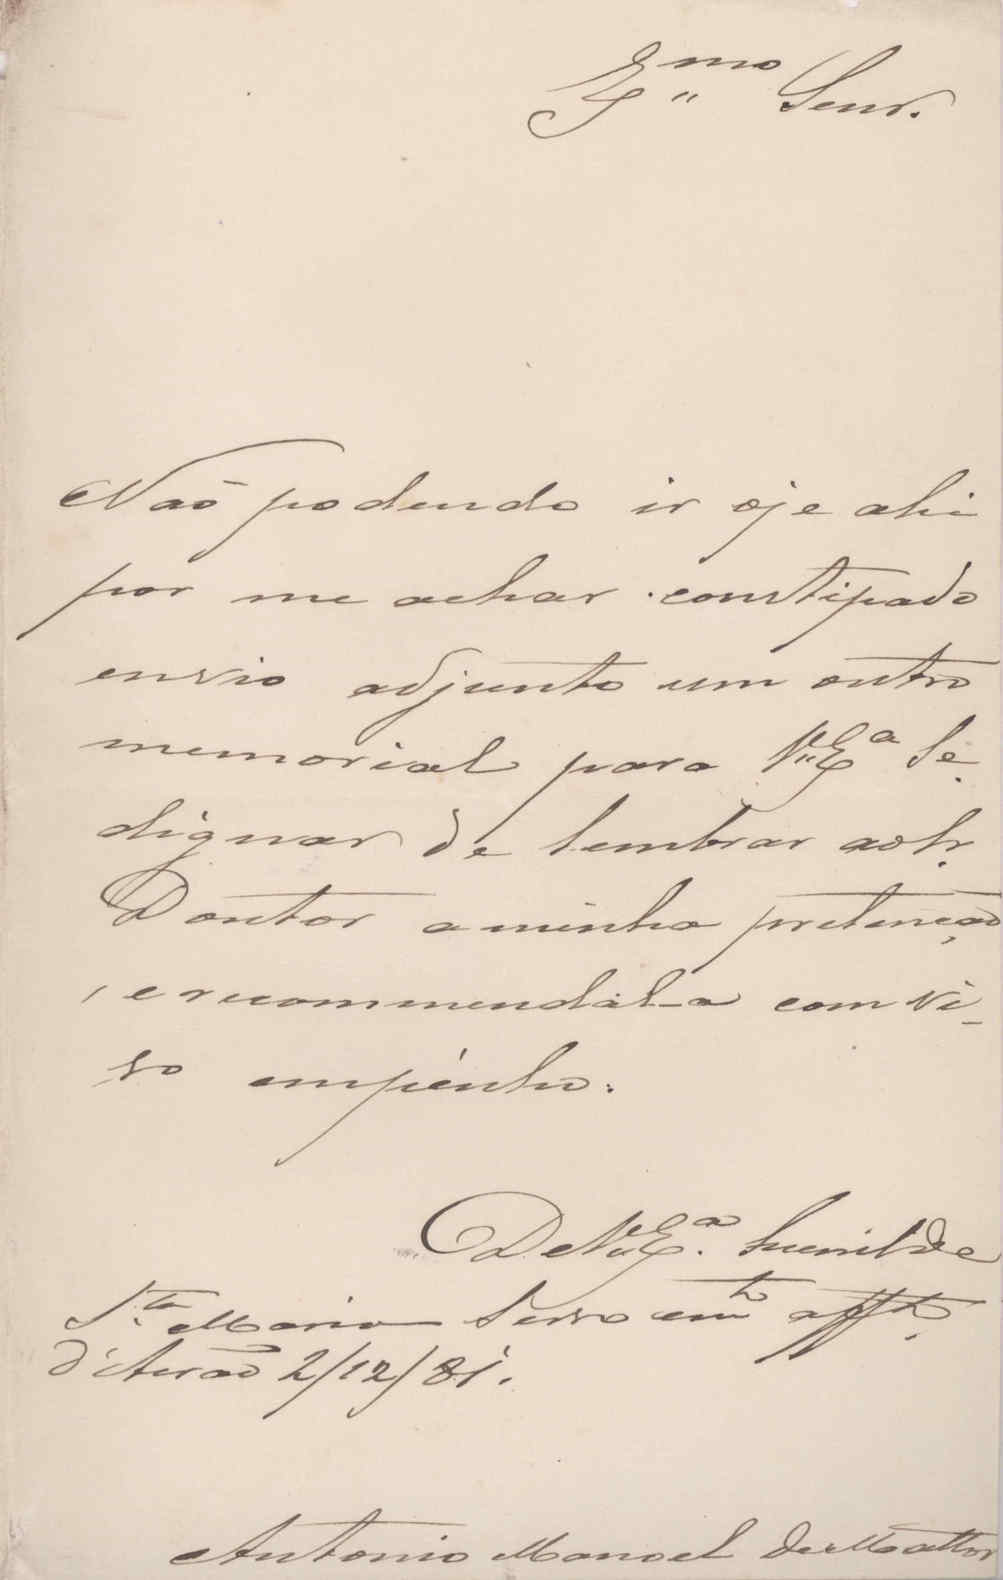 Exmo Senr.
Naõ podendo ir oje ahi
por me achar constipado
envio adjunto um outro
memorial para V.Ex.a Se
dignar de lembrar ao Sr.
Doutor a minha pretençaõ
, e recommendal-a com vi-
vo empénho.
De V.Ex.a humilde
Sta Maria Servo e m.to aff.to
d'Avraõ 2/12/81.
Antonio Manoel de Mattos